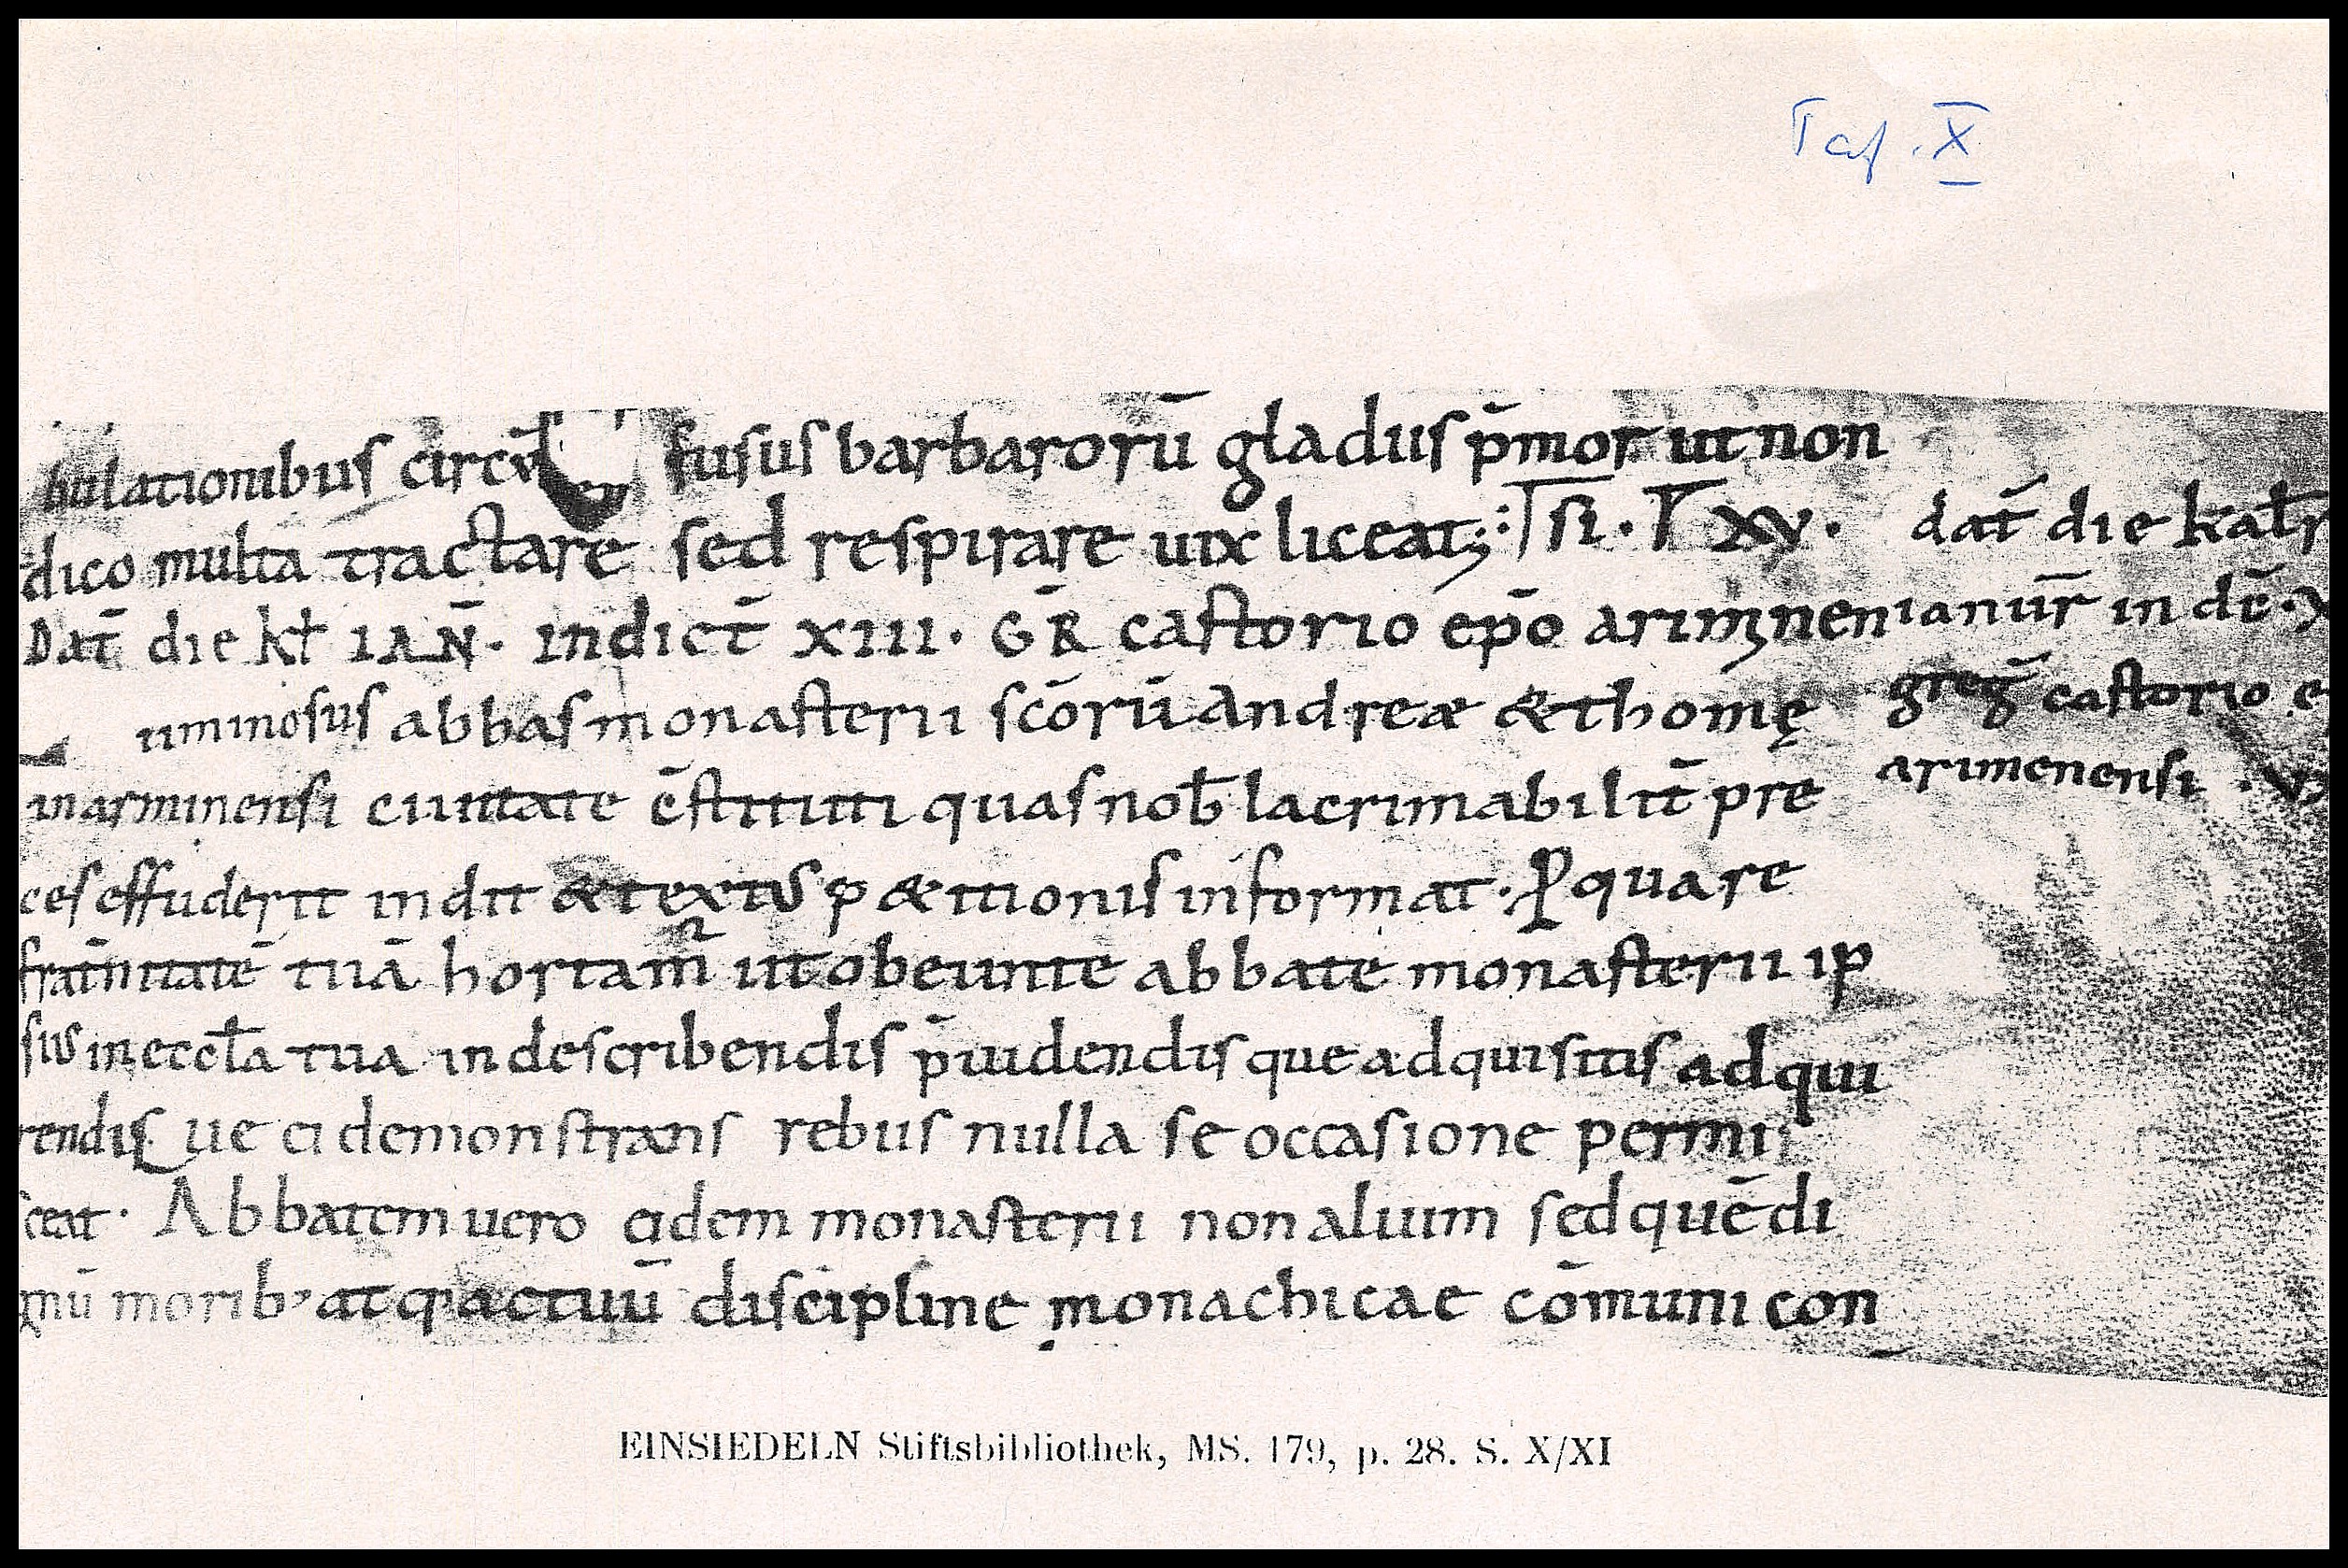 Taf. X
bulationibus circū fusus barbarorū gladiis p̄mor ut non
dico multa tractare sed respirare uix liceat;
dat̄ die kal̄
Dat̄ die kl̄ IAN̄. indict̄ XIII. GR̄ castorio ep̄o arimnen
ianūr in dc̄.
uminosus abbas monasterii sc̄orū andreæ &thomę
greḡ castorio e
in arminensi ciuitate c̄stituti quas nob̄ lacrimabilit̄ pre
arimenensi.
ces effuderit indit &textus p&itionis informat. Ꝓ quare
frat̄nitatē tuā hortam̄ ut obeunte abbate monasterii ip
sius in eccl̄a tua in describendis p̄uidendisque adquisitis adqui
rendis ue ei demonstrans rebus nulla se occasione permi
ceat. Abbatem uero eidem monasterii non alium sed quē di
gnū morib' atq; actuū discipline monachicae cōmuni con
EINSIEDELN Stiftsbibliothek, MS. 179, p. 28. S. X/XI